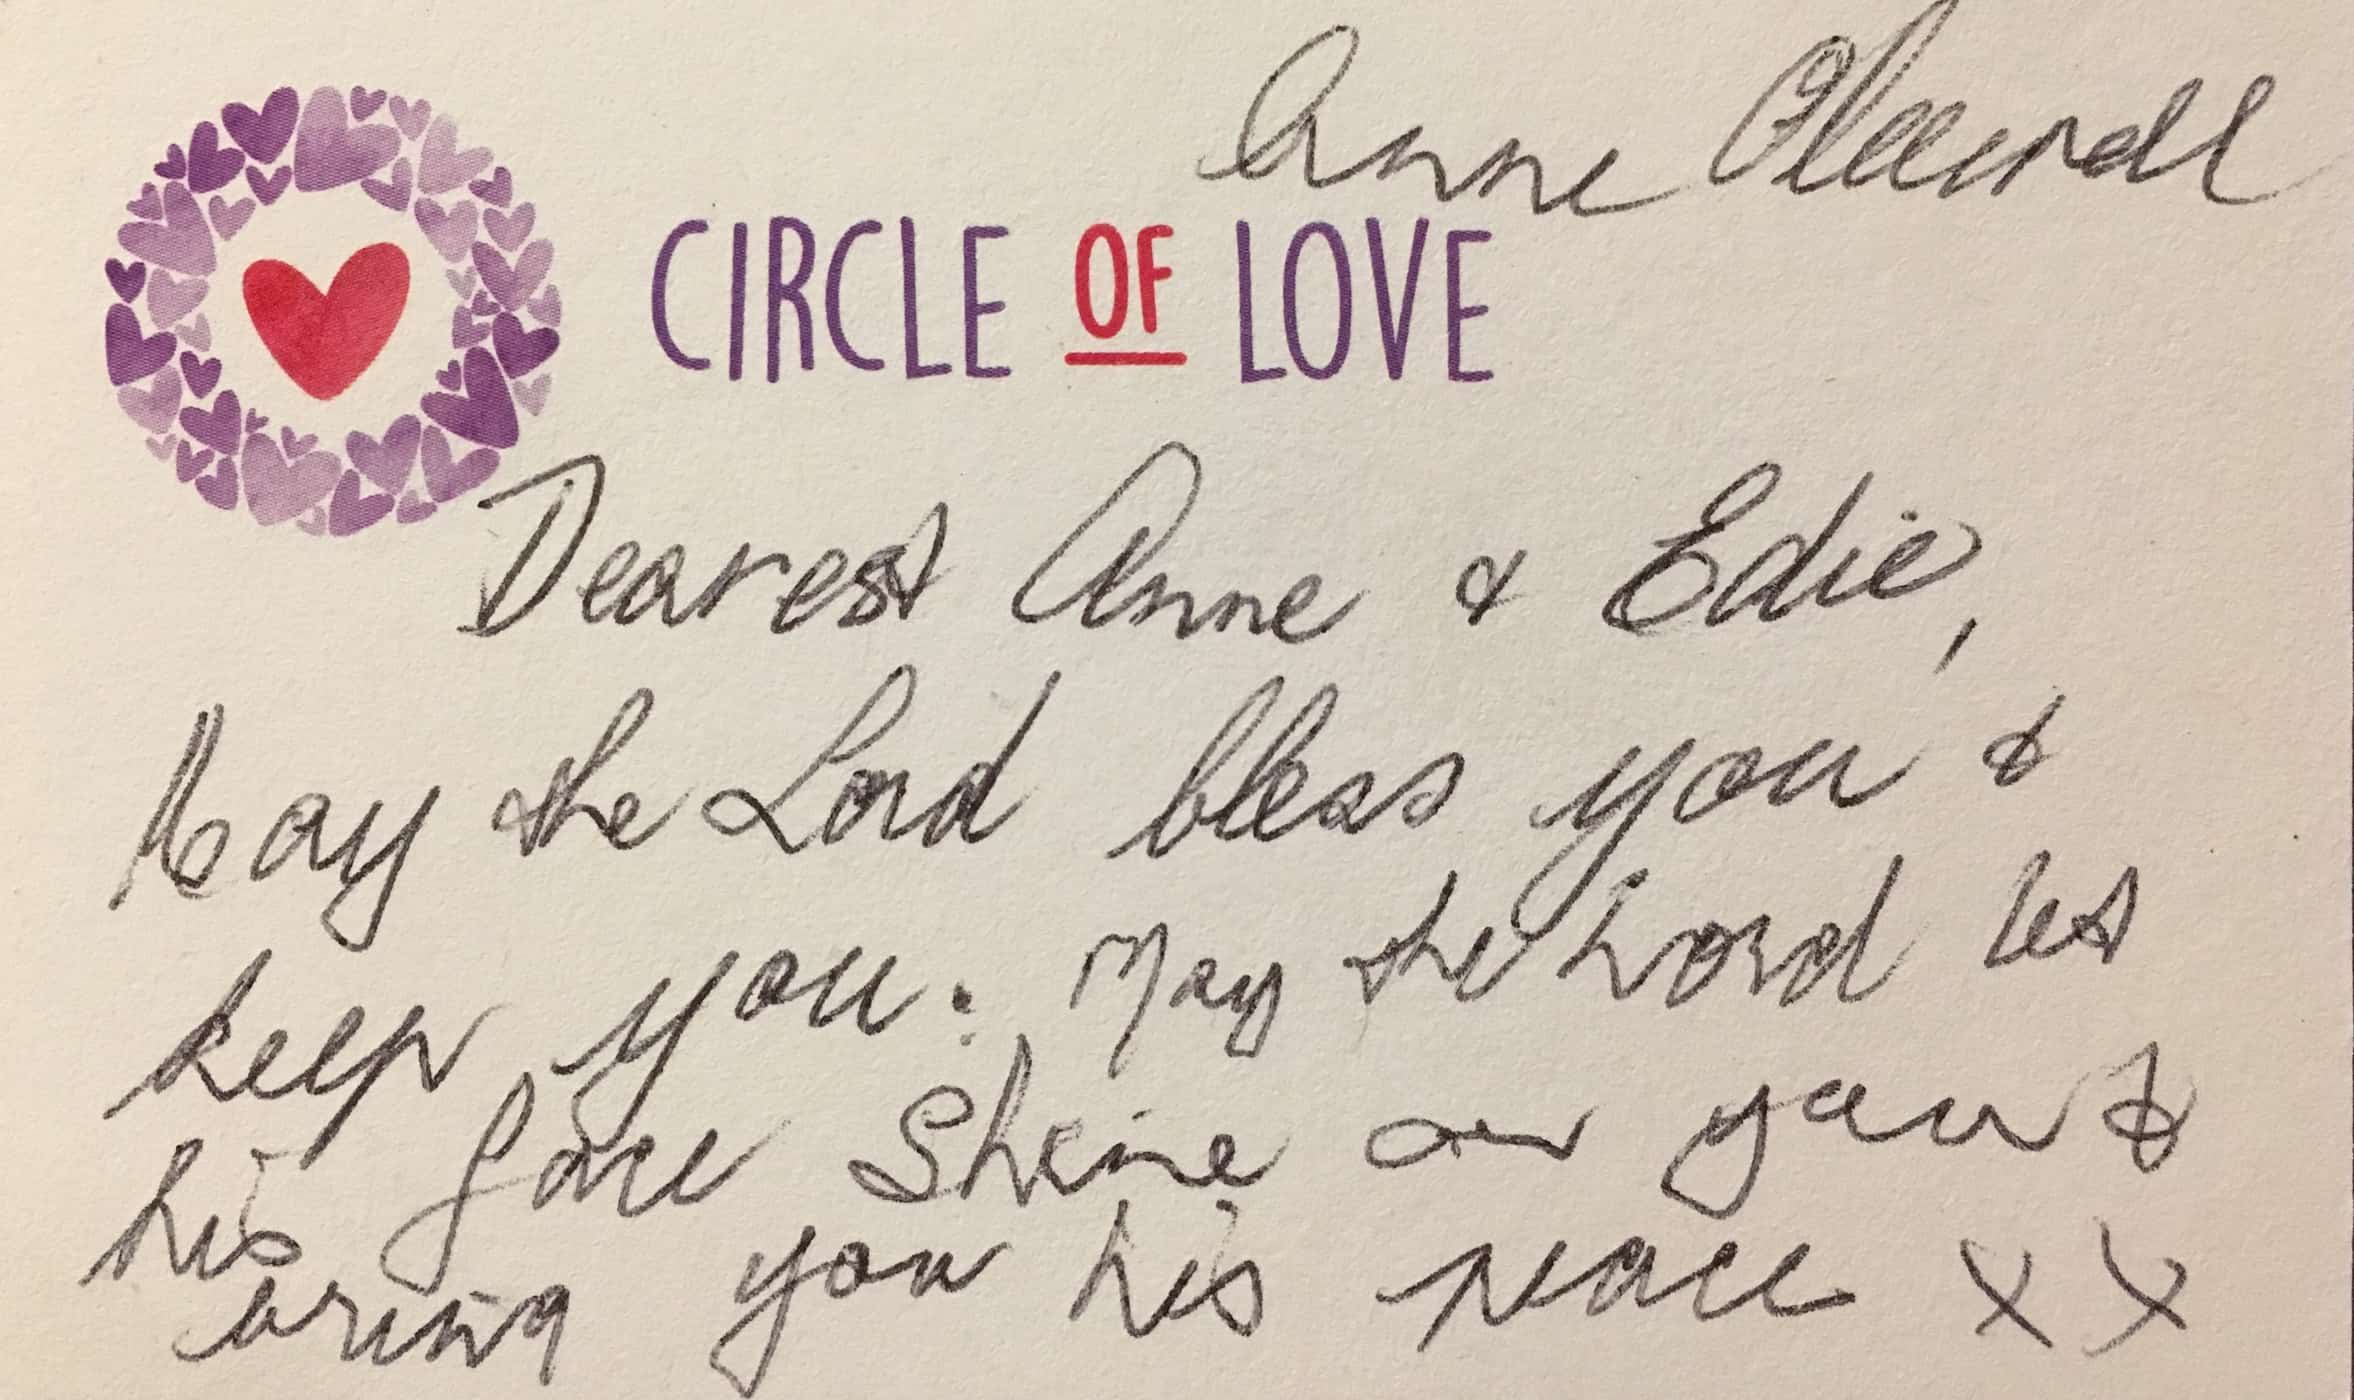 Anne
CIRCLE OF LOVE
Dearest Anne & Edie,
May the Lord bless you &
keep you. May the Lord let
his face shine on you &
bring you his peace xx